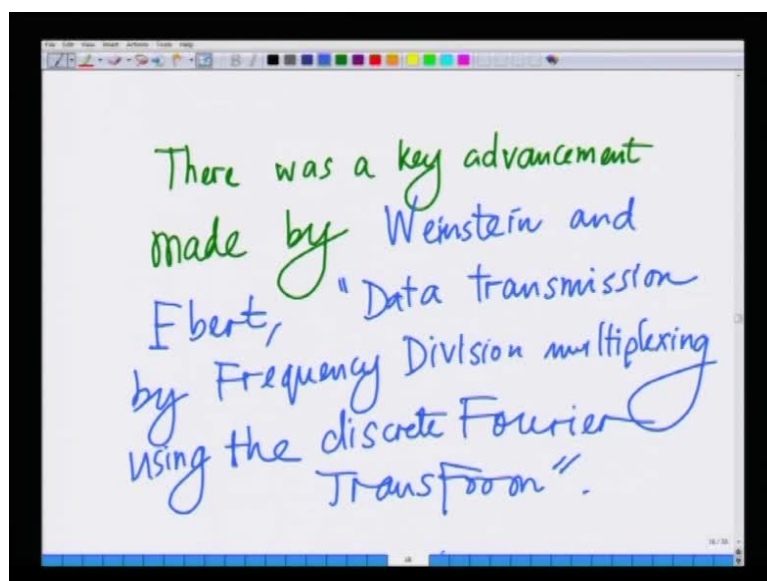 File Edit View Insert Actions Tools Help
There was a key advancement
made by Weinstein and
Ebert, "Data transmission
by Frequency Division multiplexing
using the discrete Fourier
Transform".